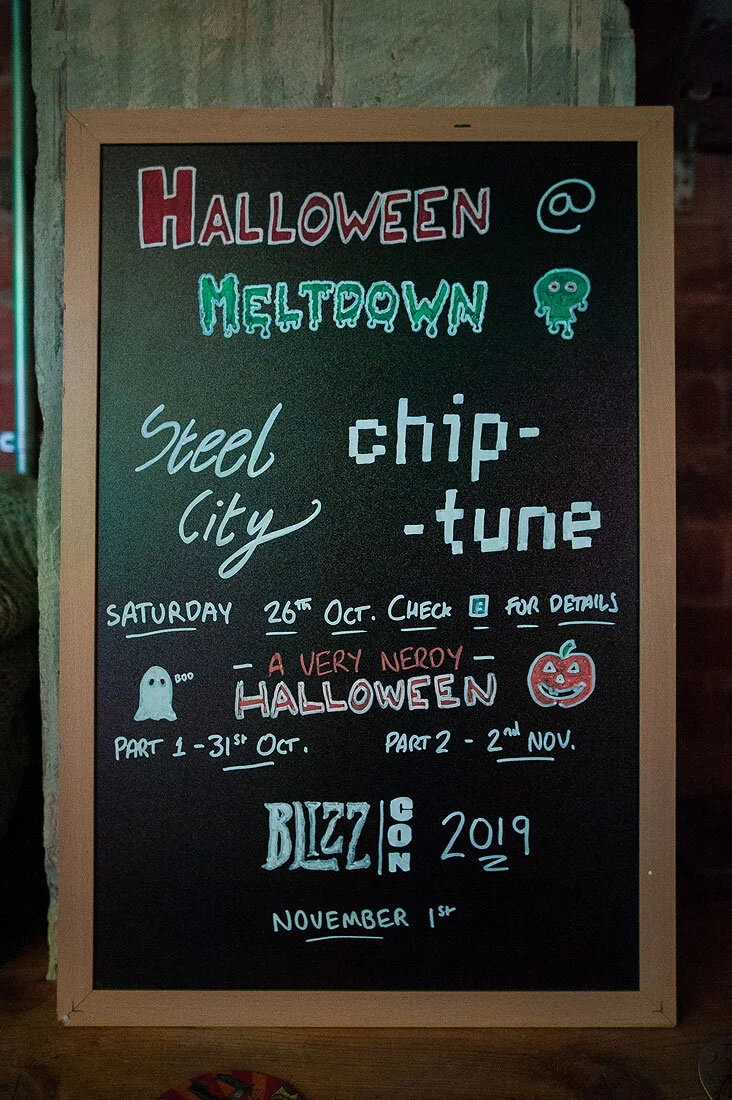 HALLOWEEN @
MELTDOWN
Steel chip-
City -tune
SATURDAY 26TH OCT. CHECK FOR DETAILS
BOO
- A VERY NERDY -
HALLOWEEN
PART 1 - 31st OCT. PART 2 - 2nd NOV.
BLIZZ CON 2019
NOVEMBER 1st